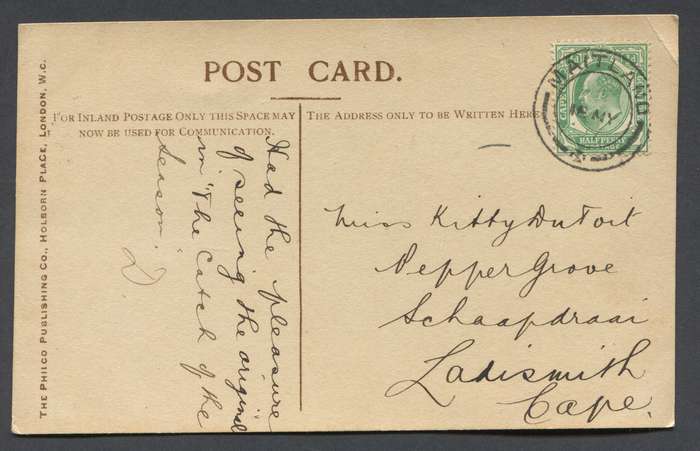 POST CARD.
FOR INLAND POSTAGE ONLY THIS SPACE MAY
NOW BE USED FOR COMMUNICATION.
THE ADDRESS ONLY TO BE WRITTEN HERE
THE PHILCO PUBLISHING CO., HOLBORN PLACE, LONDON, W.C.
Had the pleasure
of seeing the original
in "The Catch of the
Season.
D.
MAITLAND
MY
HALFPENNY
Miss Kitty DuToit
Pepper Grove
Schaapdraai
Ladismith
Cape.